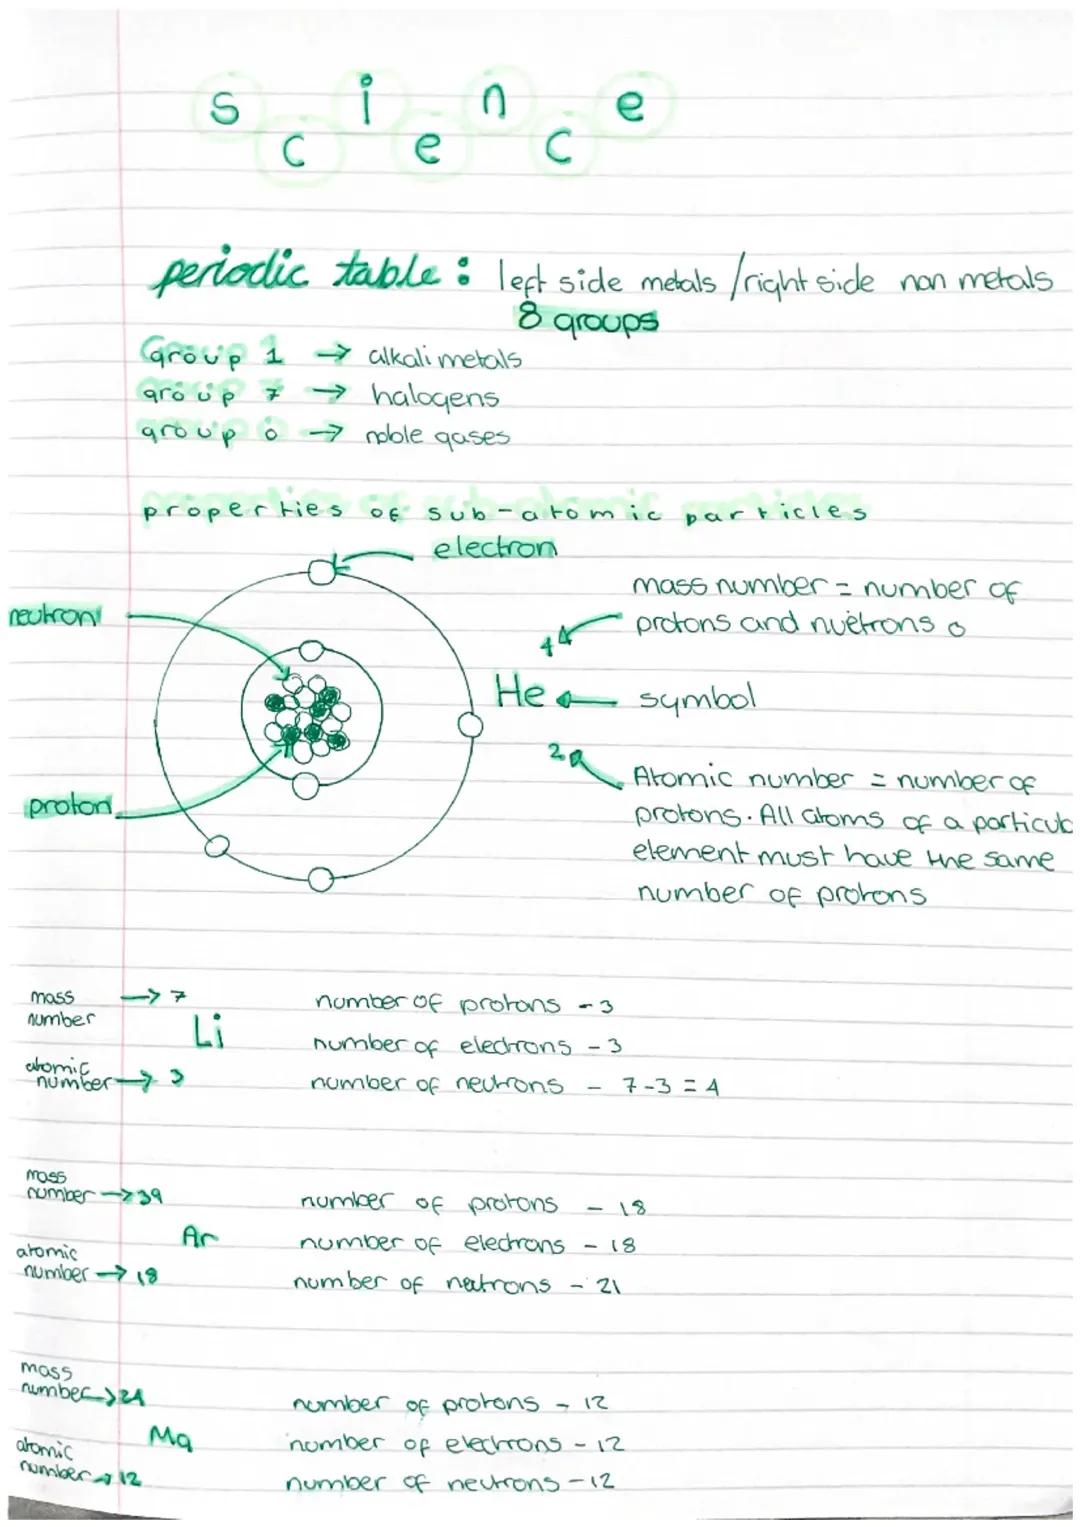 science
periodic table : left side metals / right side non metals
8 groups
Group 1 → alkali metals
group 7 → halogens
group 0 → noble gases
properties of sub-atomic particles
electron
neutron
proton
mass number = number of
protons and nuetrons
4
He ← symbol
2
Atomic number = number of
protons. All atoms of a particul
element must have the same
number of protons
mass → 7
number
Li
atomic
number → 3
number of protons - 3
number of electrons - 3
number of neutrons - 7-3 = 4
mass
number → 39
Ar
atomic
number → 18
number of protons - 18
number of electrons - 18
number of neutrons - 21
mass
number → 24
Mg
atomic
number → 12
number of protons - 12
number of electrons - 12
number of neutrons - 12